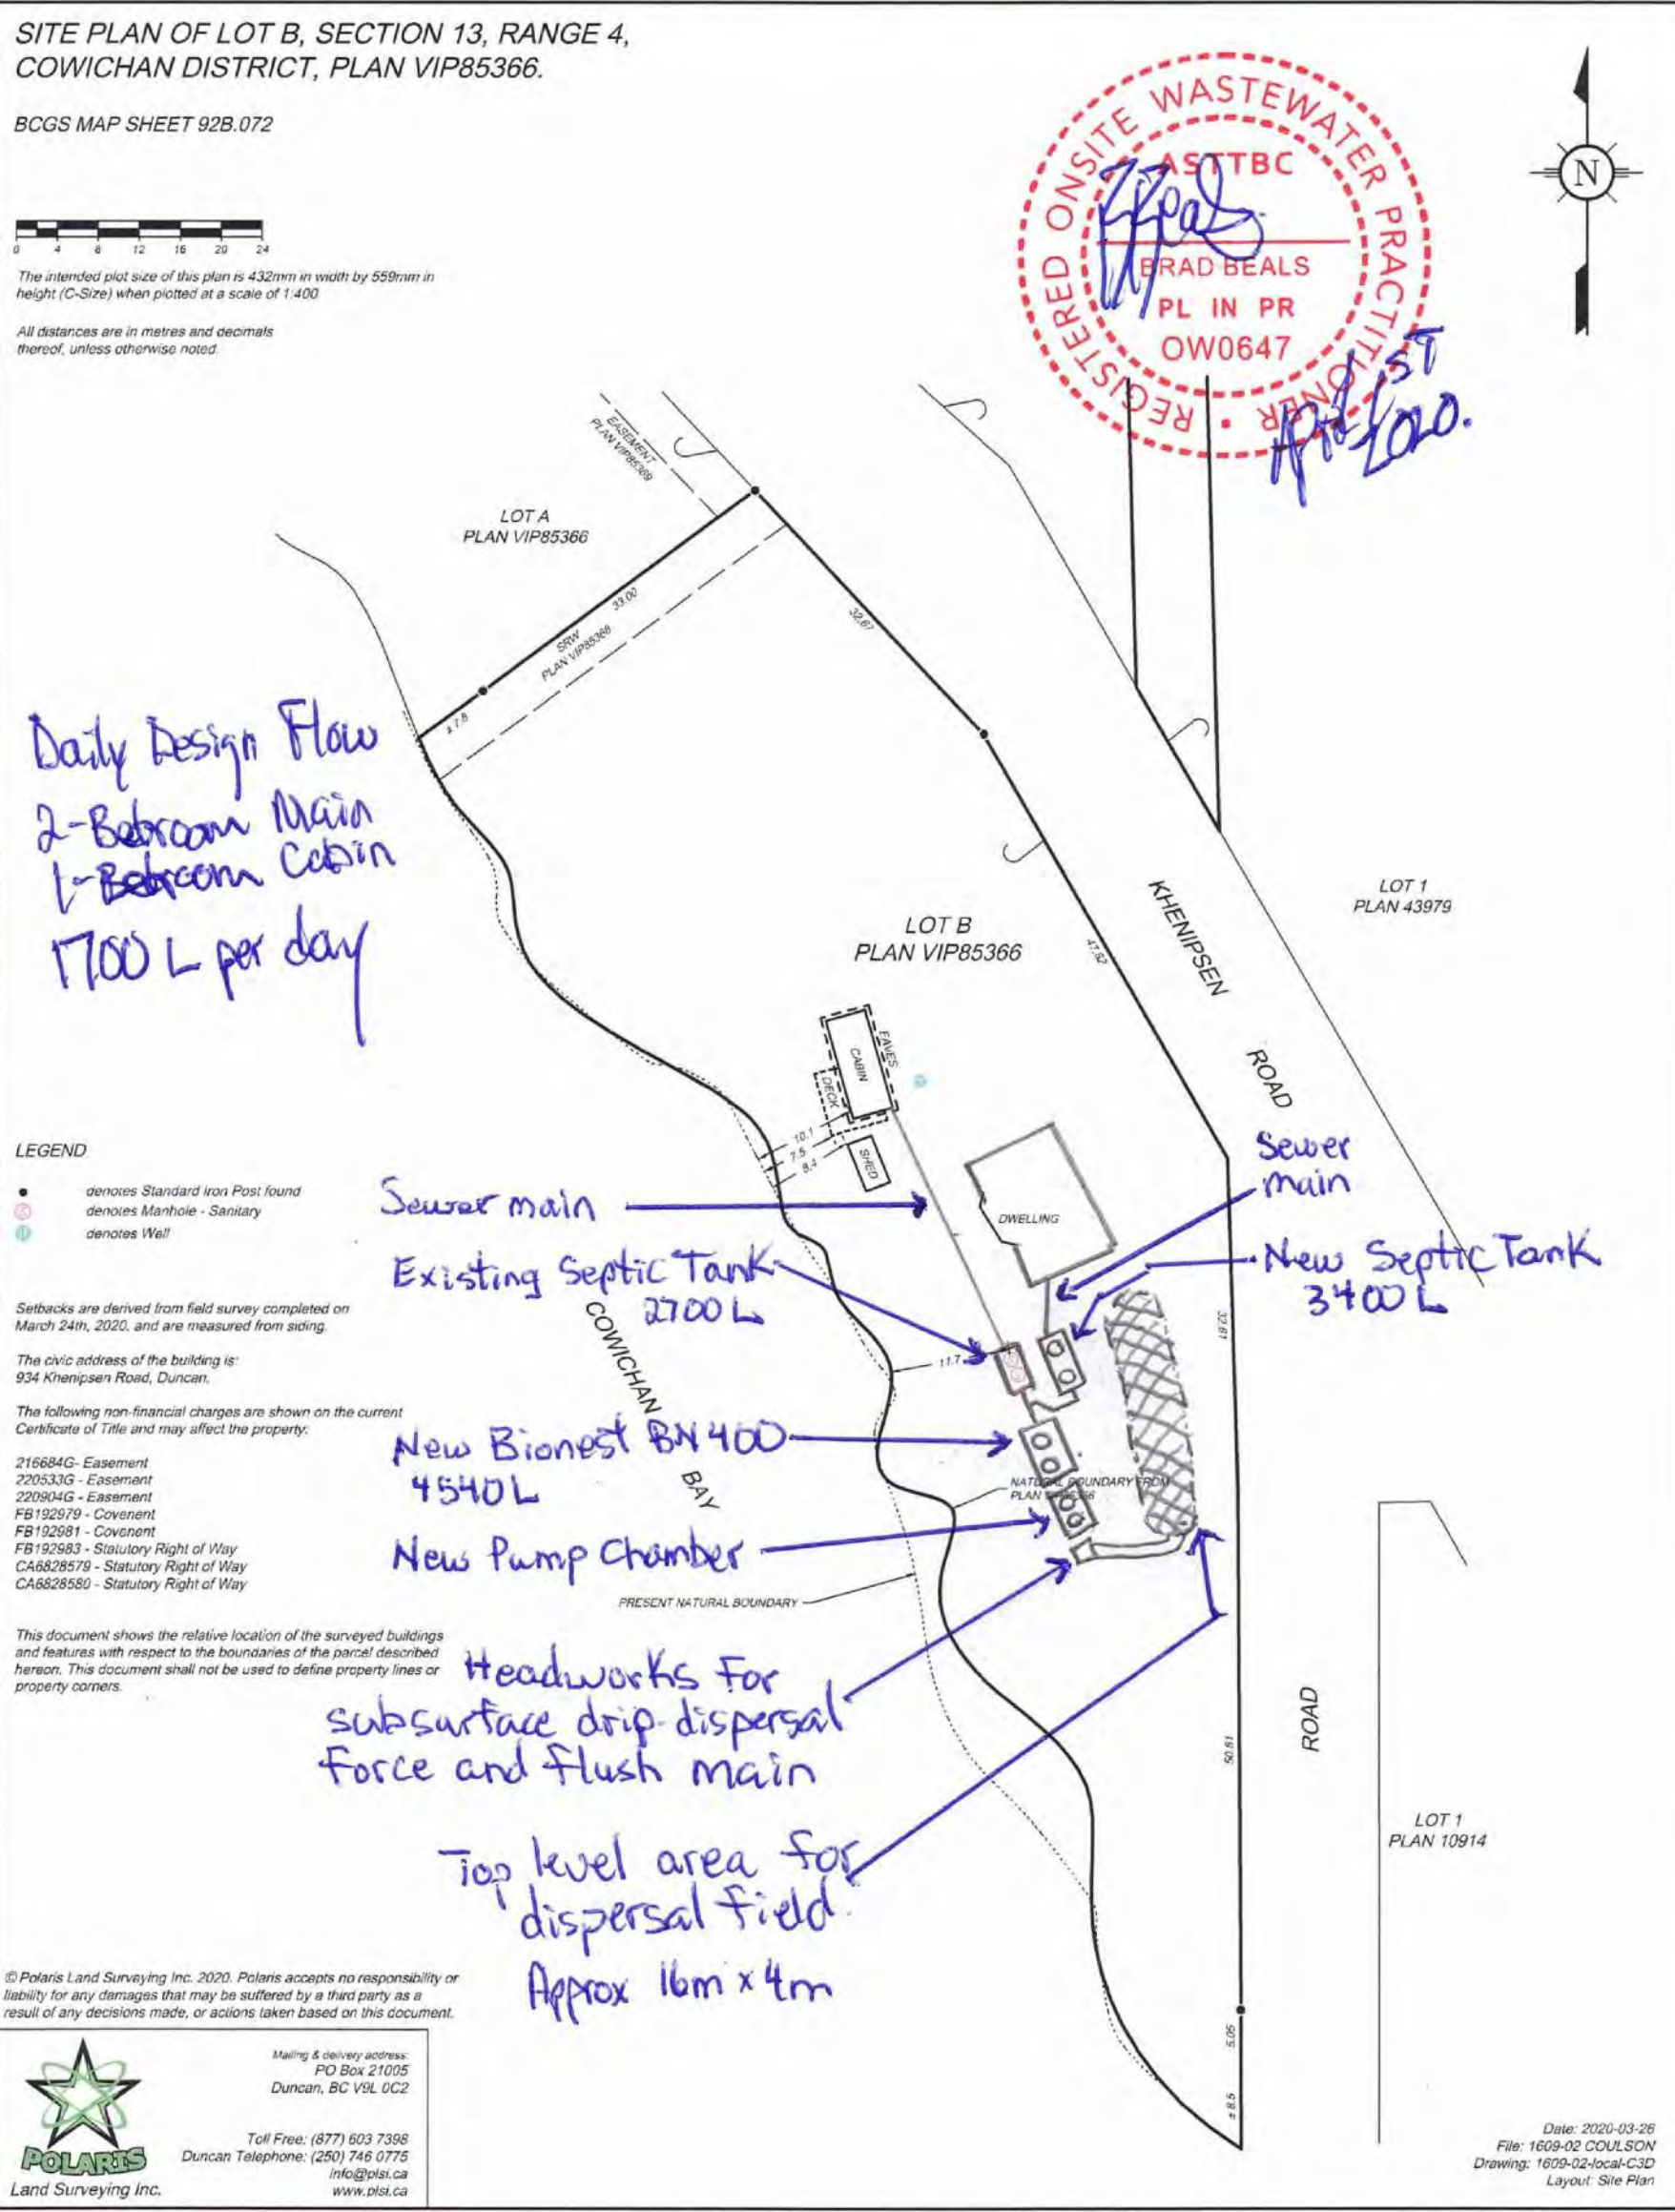 SITE PLAN OF LOT B, SECTION 13, RANGE 4,
COWICHAN DISTRICT, PLAN VIP85366.
BCGS MAP SHEET 92B.072
0 4 8 12 16 20 24
The intended plot size of this plan is 432mm in width by 559mm in
height (C-Size) when plotted at a scale of 1:400
All distances are in metres and decimals
thereof, unless otherwise noted.
REGISTERED ONSITE WASTEWATER PRACTITIONER
ASTTBC
BRAD BEALS
PL IN PR
OW0647
April 1st
2020.
N
EASEMENT
PLAN VIP85369
LOT A
PLAN VIP85366
33.00
SRW
PLAN VIP85368
± 7.8
32.67
Daily Design Flow
2-Bebroom Main
1-Bebroom Cabin
1700 L per day
LOT B
PLAN VIP85366
47.92
KHENIPSEN
ROAD
LOT 1
PLAN 43979
CABIN
EAVES
DECK
SHED
10.1
7.5
8.4
DWELLING
LEGEND
denotes Standard Iron Post found
denotes Manhole - Sanitary
denotes Well
Sewer main
Sewer
main
Existing Septic Tank
2700 L
New Septic Tank
3400 L
32.61
11.7
COWICHAN
BAY
Setbacks are derived from field survey completed on
March 24th, 2020, and are measured from siding.
The civic address of the building is:
934 Khenipsen Road, Duncan.
The following non-financial charges are shown on the current
Certificate of Title and may affect the property:
216684G- Easement
220533G - Easement
220904G - Easement
FB192979 - Covenent
FB192981 - Covenent
FB192983 - Statutory Right of Way
CA6828579 - Statutory Right of Way
CA6828580 - Statutory Right of Way
New Bionest BN400
4540L
NATURAL BOUNDARY FROM
PLAN
New Pump Chamber
PRESENT NATURAL BOUNDARY
This document shows the relative location of the surveyed buildings
and features with respect to the boundaries of the parcel described
hereon. This document shall not be used to define property lines or
property corners.
Headworks For
subsurface drip-dispersal
Force and flush main
ROAD
50.81
Top level area for
dispersal field.
Approx 16m x 4m
LOT 1
PLAN 10914
5.05
± 8.5
© Polaris Land Surveying Inc. 2020. Polaris accepts no responsibility or
liability for any damages that may be suffered by a third party as a
result of any decisions made, or actions taken based on this document.
Mailing & delivery address:
PO Box 21005
Duncan, BC V9L 0C2
Toll Free: (877) 603 7398
Duncan Telephone: (250) 746 0775
info@plsi.ca
www.plsi.ca
POLARIS
Land Surveying Inc.
Date: 2020-03-26
File: 1609-02 COULSON
Drawing: 1609-02-local-C3D
Layout: Site Plan